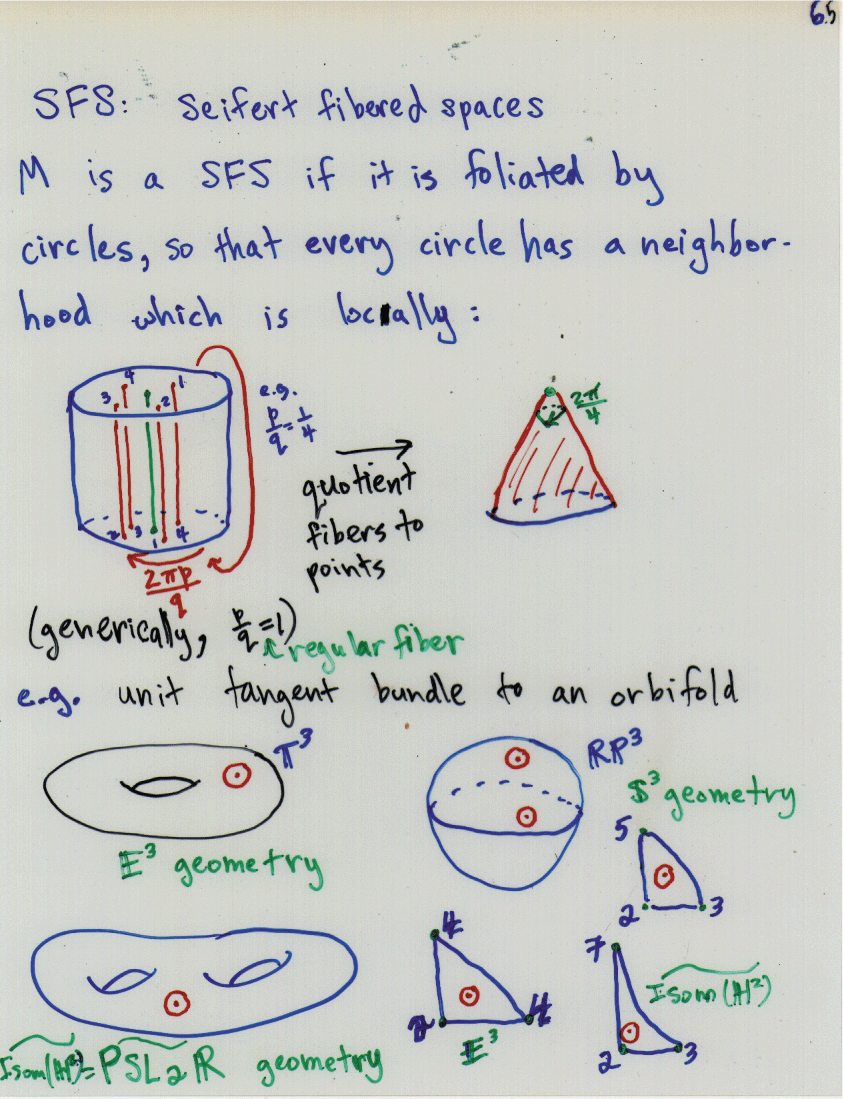 65
SFS: Seifert fibered spaces
M is a SFS if it is foliated by
circles, so that every circle has a neighbor-
hood which is locally:
4
3 2 1
e.g.
p/q = 1/4
2π/4
quotient
fibers to
points
2 3 1 4
2πp/q
(generically, p/q = 1)
regular fiber
e.g. unit tangent bundle to an orbifold
T³
RP³
S³ geometry
E³ geometry
5
2 3
4
2 4
E³
7
Isom(H²)
2 3
Isom(H²) = PSL₂R geometry